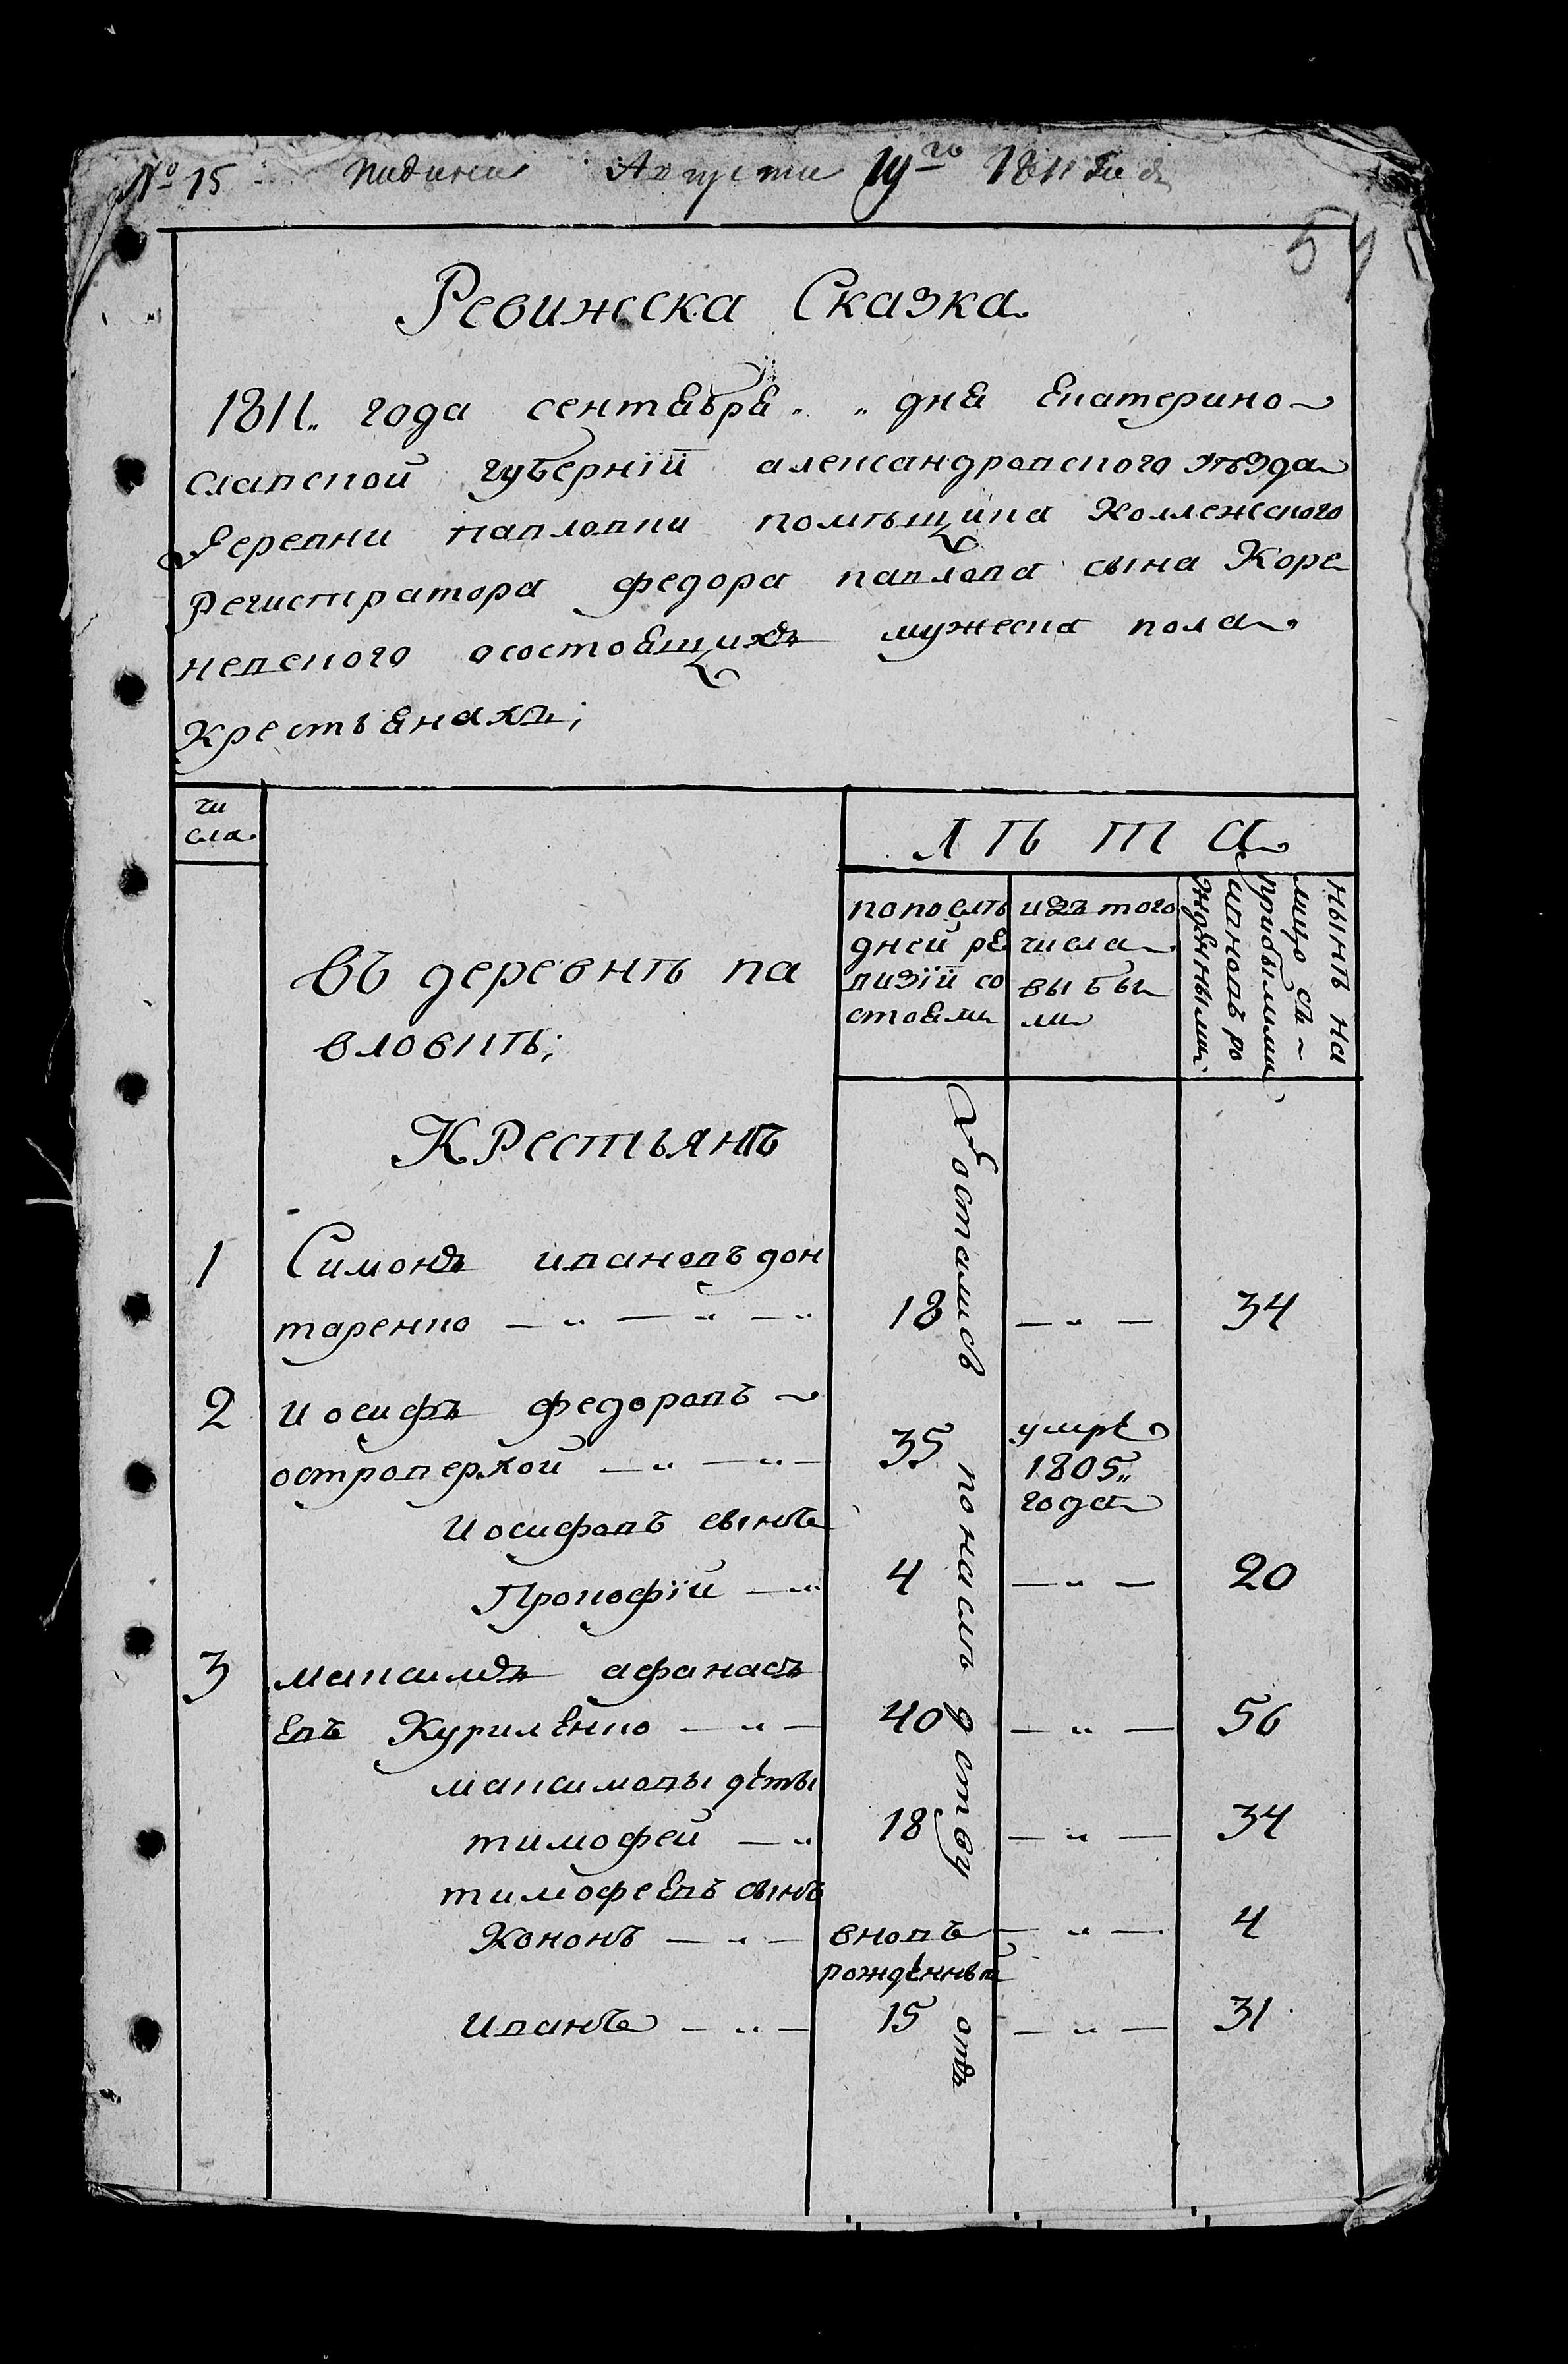 № 15 Подана Августа 19го 1811 года
54
Ревижска Сказка
1811 года сентября „ „ дня Екатерино
славской губернїй александровского уѣзда
Деревни павловки помѣщика Коллежского
Регистратора федора павлова сына Коре
невского осостоящихъ мужеска пола
Крестьянахъ;
чи
сла
лѣта
въ деревнѣ па
вловкѣ;
попослѣ
дней ре
визїй со
стояли
изъ того
числа
выбы
ли
нынѣ на
лицо съ
прибылыми
ивновь ро
жденными
Крестьянъ
1 Симонъ ивановъ дон
таренко — „ — „ — „ 18 — „ — 34
2 иосифъ федоровъ
островерхой — „ — „ — 35 умре
1805„
года
Иосифовъ сынъ
Прокофїй — „ 4 — „ — 20
3 максимъ афанасъ
евъ Куриленко — „ — 40 — „ — 56
максимовы дѣты
тимофей — „ 18 — „ — 34
тимофеевъ сынъ
Кононъ — „ — вновъ — „ — 4
рожденный
иванъ — „ — 15 — „ — 31
Досталисъ понаслѣдству отъ